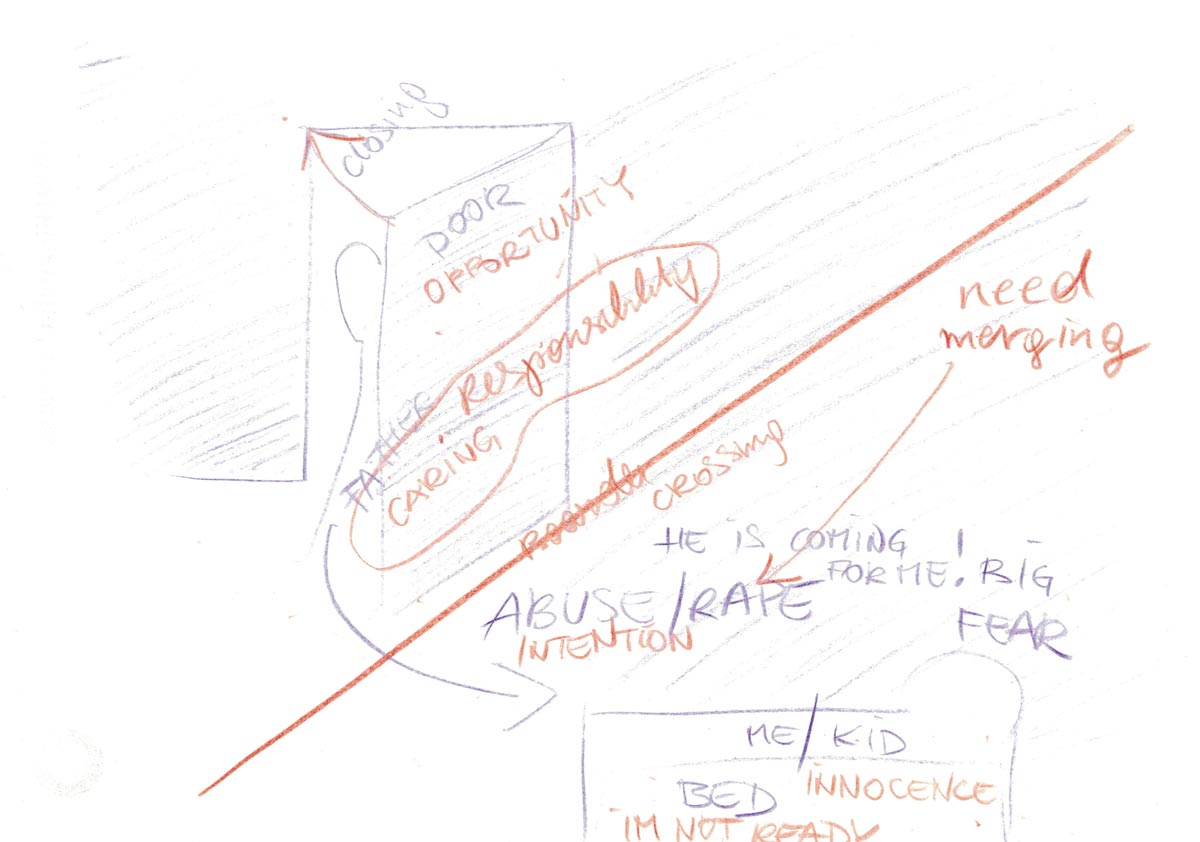 closing
DOOR
OPPORTUNITY
Responsibility
FATHER
CARING
need
merging
crossing
HE IS COMING
FOR ME! BIG
FEAR
ABUSE/RAPE
INTENTION
ME/KID
BED INNOCENCE
IM NOT READY